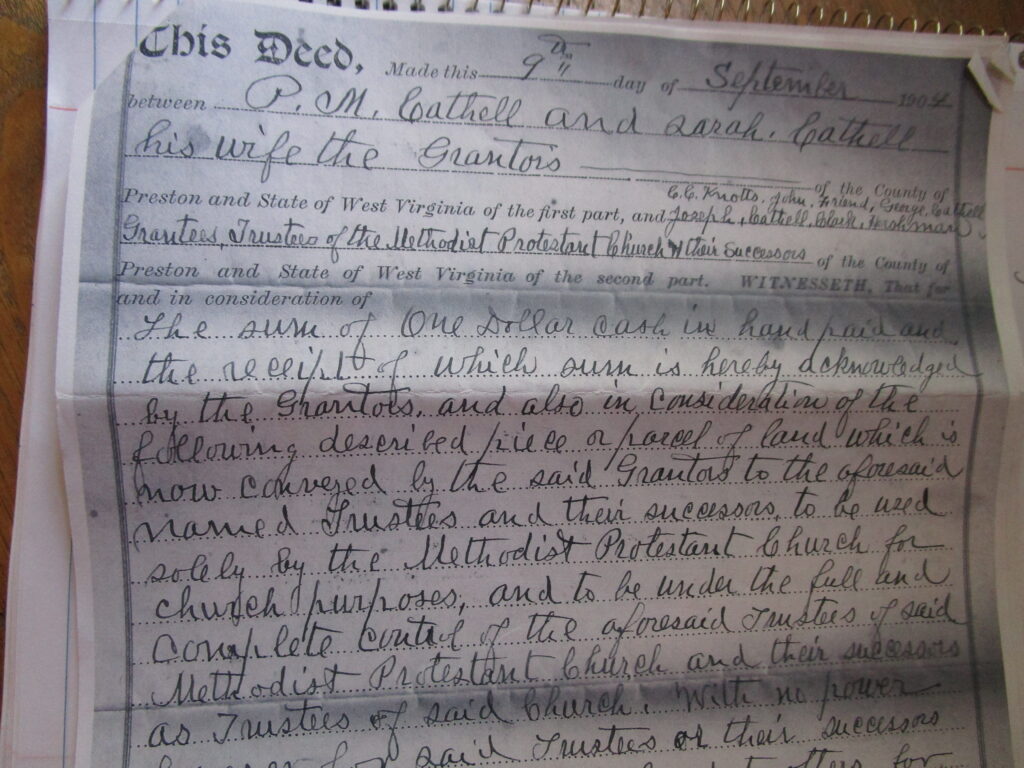 This Deed, Made this 9th day of September 1904
between P. M. Cathell and Sarah. Cathell
his wife the Grantors
of the County of
C.C. Knotts, John, Friend, George, Cathell
Preston and State of West Virginia of the first part, and Joseph, Cathell, Clark,
Grantees, Trustees of the Methodist Protestant Church & their Successors of the County of
Preston and State of West Virginia of the second part. WITNESSETH, That for
and in consideration of
The sum of One Dollar cash in hand paid and
the receipt of which sum is hereby acknowledged
by the Grantors, and also in consideration of the
following described piece or parcel of land which is
now conveyed by the said Grantors to the aforesaid
named Trustees and their successors, to be used
solely by the Methodist Protestant Church for
church purposes, and to be under the full and
complete control of the aforesaid Trustees of said
Methodist Protestant Church and their successors
as Trustees of said Church. With no power
for said Trustees or their successors
for